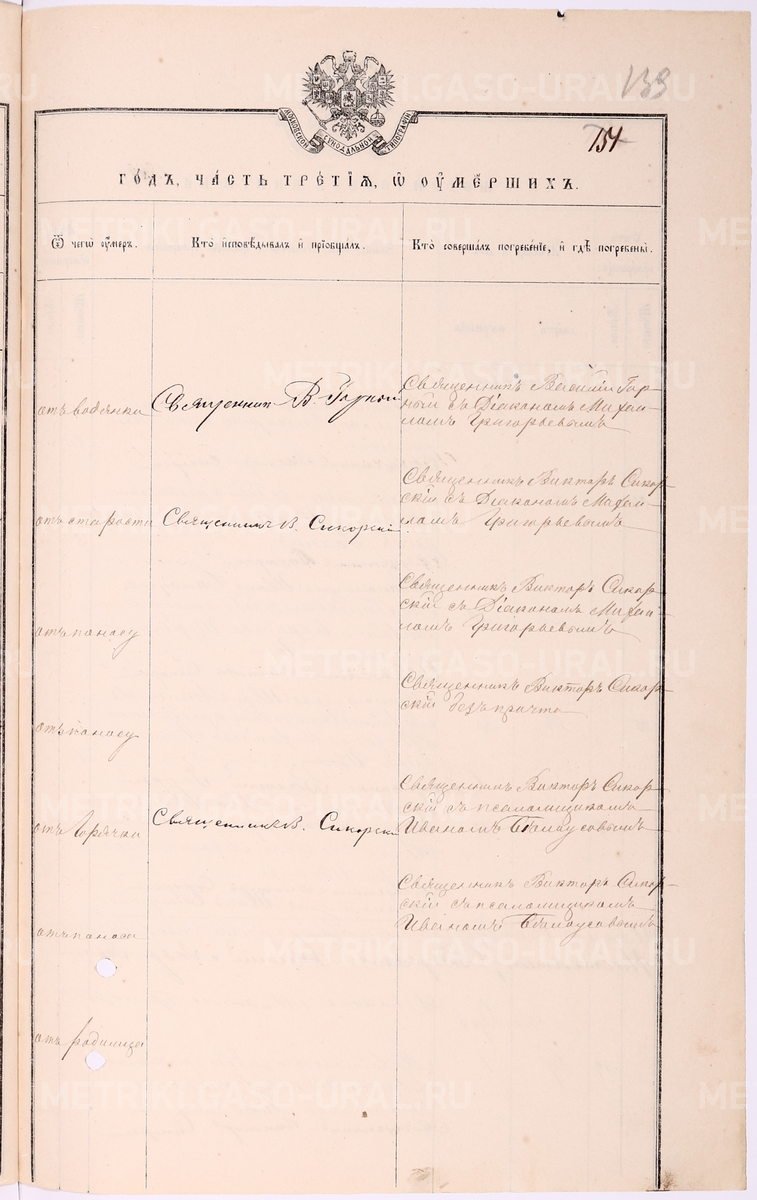 139
154
МОСКОВСКОЙ СѴНОДАЛЬНОЙ ТИПОГРАФІИ
ГОДЪ, ЧАСТЬ ТРЕТІѦ, Ѡ ОУМЕРШИХЪ.
Ѿ чегѡ оумеръ.
Кто исповѣдывалъ и пріобщалъ.
Кто совершалъ погребеніе, и гдѣ погребены.
отъ водянки
Священник В. Горной
Священникъ Василій Гор-
ной съ Діакономъ Михаи-
ломъ Григорьевымъ
отъ старости
Священникъ В. Сикорскій.
Священникъ Викторъ Сикор-
скій съ Діакономъ Михаи-
ломъ Григорьевымъ
отъ поносу
Священникъ Викторъ Сикор-
скій съ Діакономъ Михаи-
ломъ Григорьевымъ
отъ поносу
Священникъ Викторъ Сикор-
скій безъ причта
отъ Горячки
Священникъ В. Сикорскі
Священникъ Викторъ Сикор-
скій съ псаломщикомъ
Иваномъ Бѣлоусовымъ
отъ поноса
Священникъ Викторъ Сикор-
скій съ псаломщикомъ
Иваномъ Бѣлоусовымъ
отъ родимца
METRIKI.GASO-URAL.RU